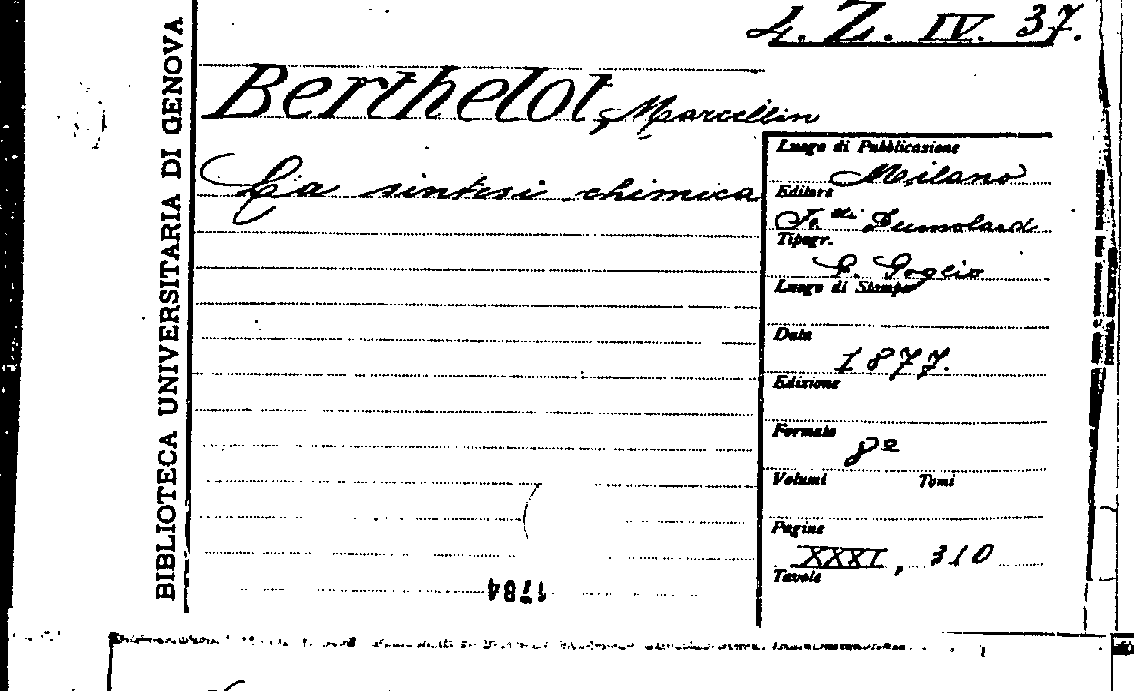 4. Z. IV. 37.
BIBLIOTECA UNIVERSITARIA DI GENOVA
Berthelot, Marcellin
La sintesi chimica
Luogo di Pubblicazione
Milano
Editore
F.lli Dumolard
Tipogr.
Luogo di Stampa
Data
1877.
Edizione
Formato
8º
Volumi Tomi
Pagine
XXXI, 310
Tavole
1784